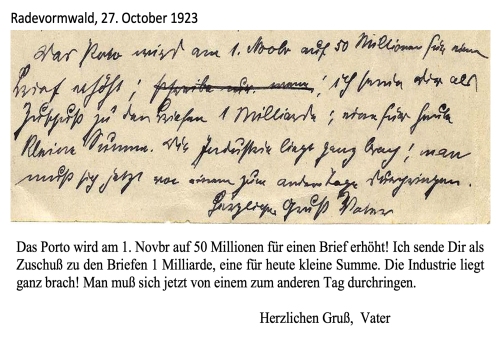 Radevormwald, 27. October 1923
Das Porto wird am 1. Novbr auf 50 Millionen für einen
Brief erhöht! schreibe nur, wenn! ich sende Dir als
Zuschuß zu den Briefen 1 Milliarde; eine für heute
kleine Summe. Die Industrie liegt ganz brach! man
muß sich jetzt von einem zum anderen Tage durchringen.
Herzlichen Gruß Vater
Das Porto wird am 1. Novbr auf 50 Millionen für einen Brief erhöht! Ich sende Dir als
Zuschuß zu den Briefen 1 Milliarde, eine für heute kleine Summe. Die Industrie liegt
ganz brach! Man muß sich jetzt von einem zum anderen Tag durchringen.
Herzlichen Gruß, Vater